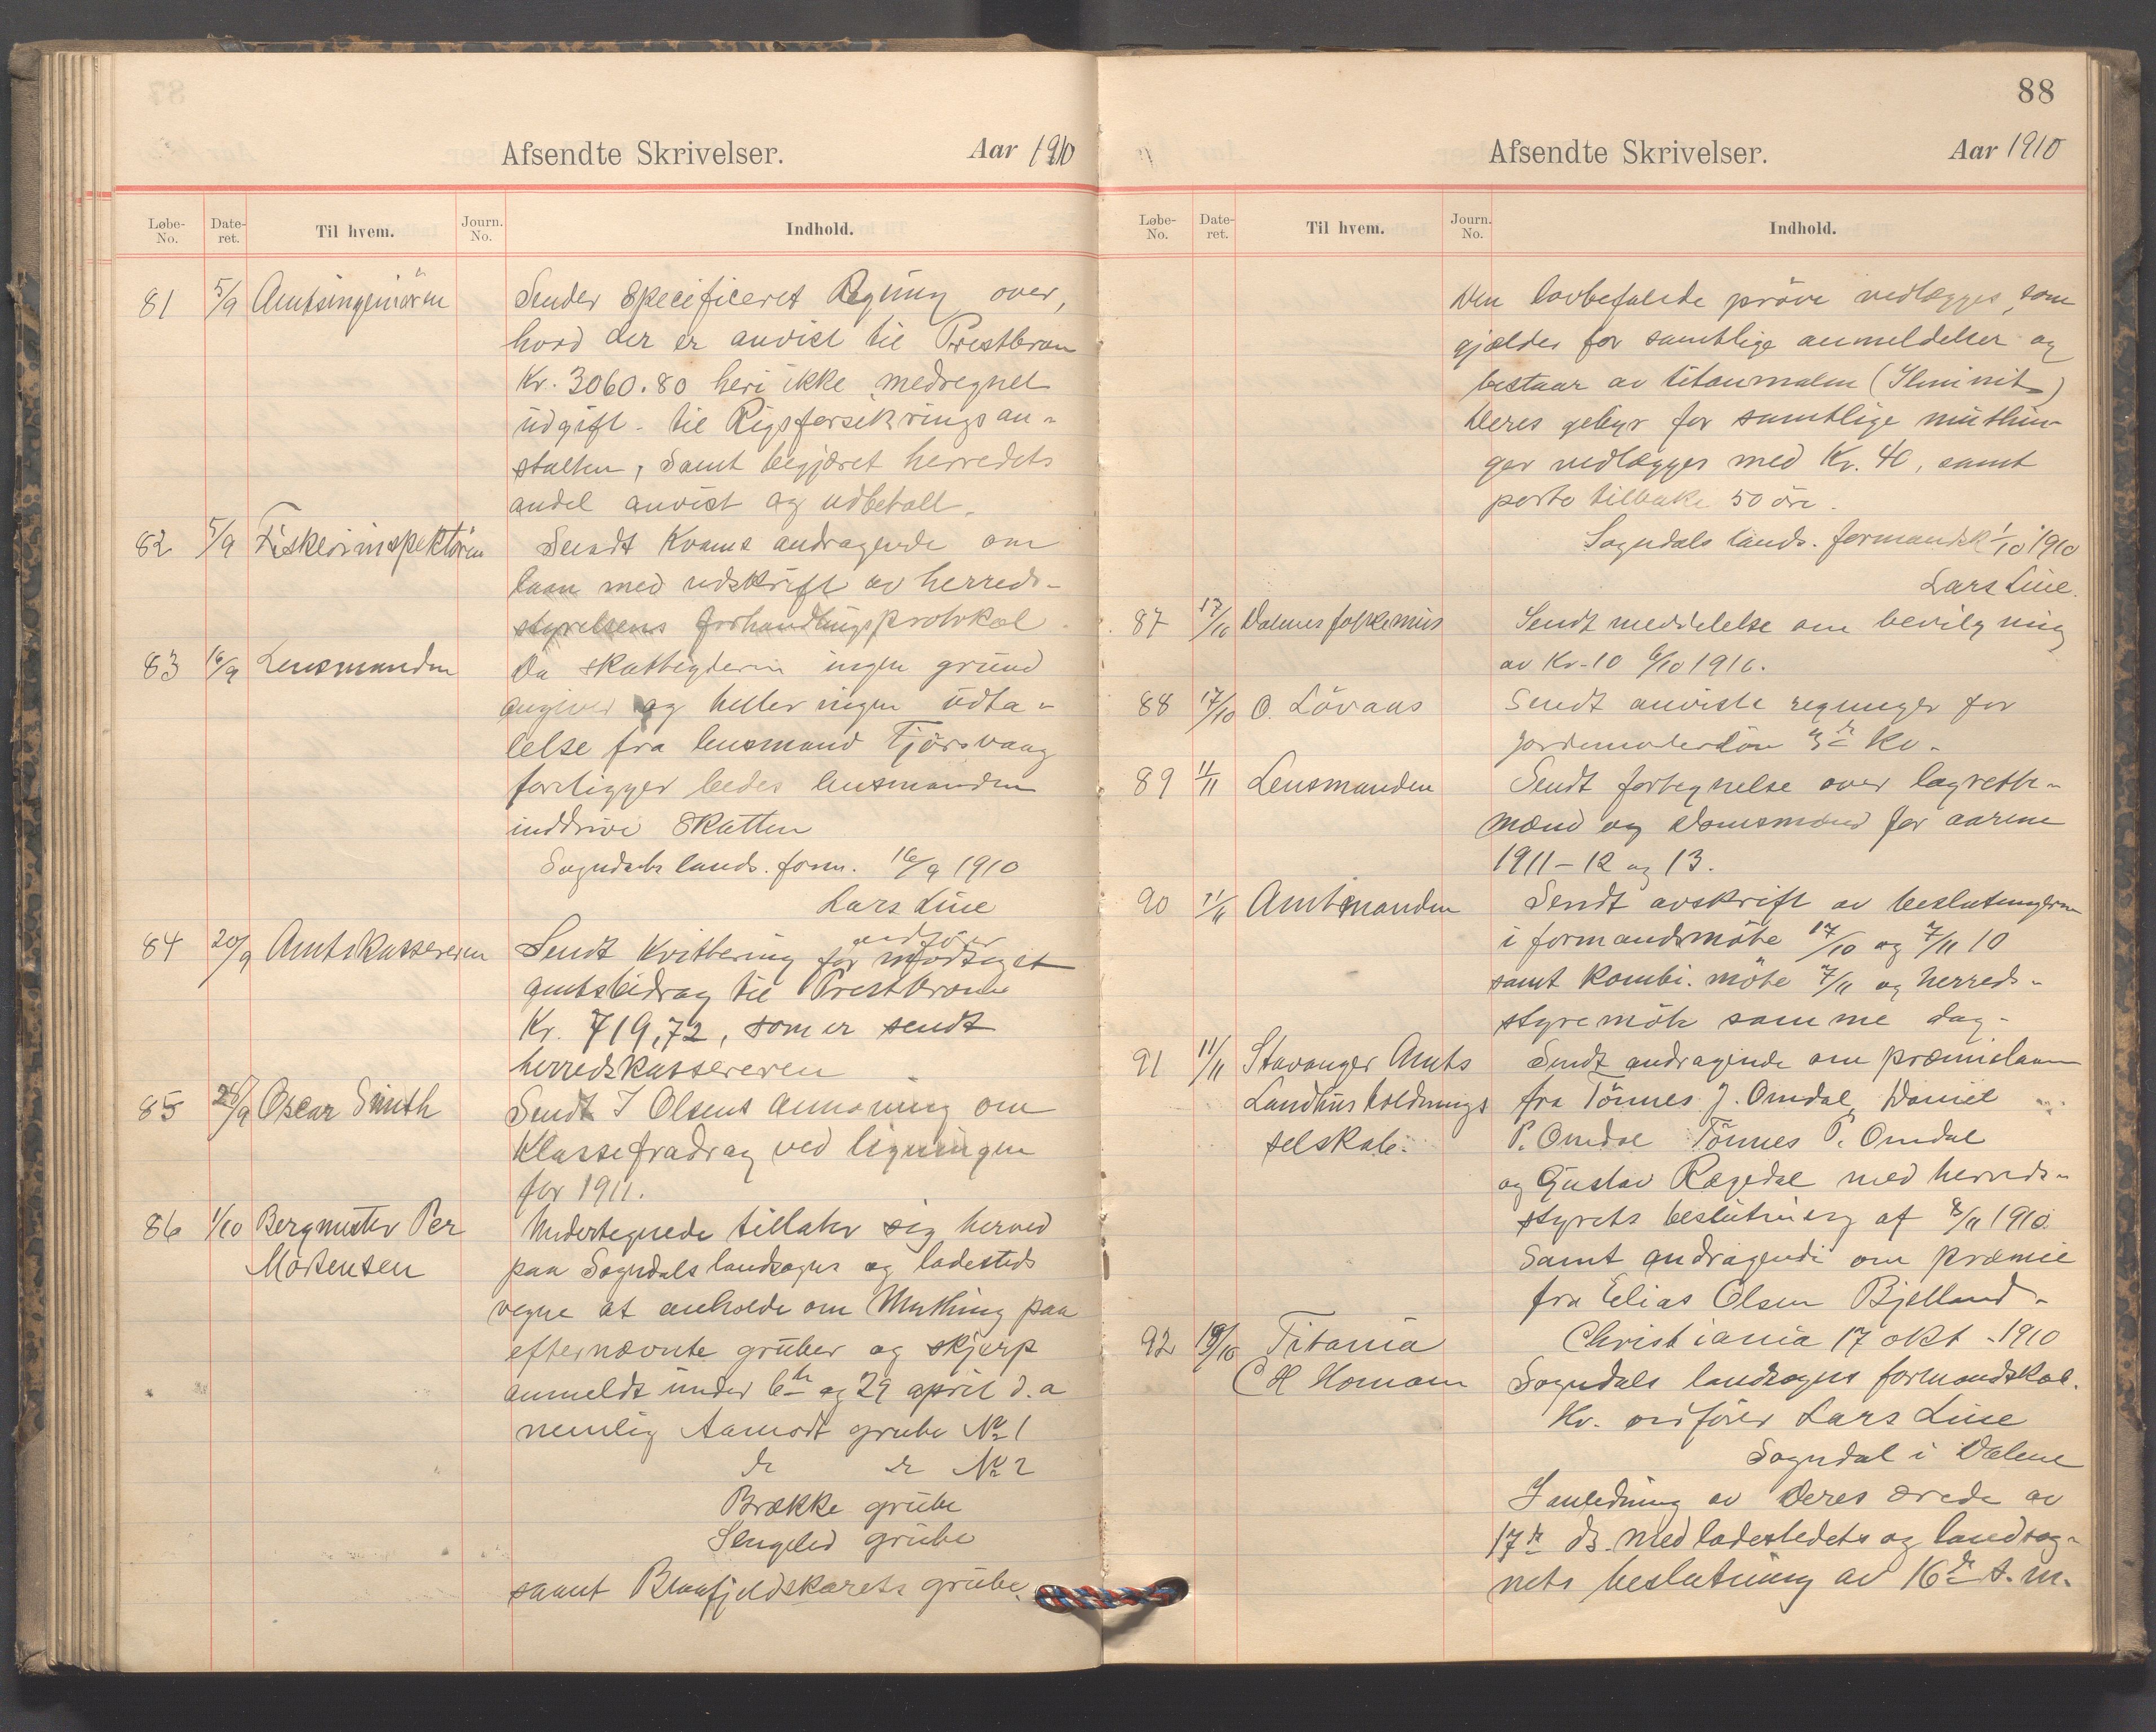 Afsendte Skrivelser. Aar 1910
Løbe-No. Date-ret. Til hvem. Journ. No. Indhold.
81 5/9 Amtsingeniøren Sender Specificeret Regning over,
hvad der er anvist til Prestbroen
Kr. 3060.80 heri ikke medregnet
udgift - til Rigsforsikringsan-
stalten, samt begjæret herredets
andel anvist og udbetalt.
82 5/9 Fiskeriinspektören Sendt Kvams andragende om
laan med udskrift av herreds-
styrelsens forhandlingsprotokol.
83 16/9 Lensmanden Da skatteyderen ingen grund
angiver og heller ingen udta-
lelse fra lensmand Tjörsvaag
foreligger bedes lensmanden
inddrive Skatten
Sogndals lands. form. 16/9 1910
Lars Liue
ordförer
84 20/9 Amtskassereren Sendt Kvittering for modtaget
amtsbidrag til Prestbroen
Kr. 719,72, som er sendt
herredskassereren
85 28/9 Oscar Smith Sendt I Olsens anmoning om
Klassefradrag ved ligningen
for 1911.
86 1/10 Bergmester Per Undertegnede tillater sig herved
Mortensen paa Sogndals landsogns og ladesteds
vegne at anholde om Muthing paa
efternævnte gruber og skjerp
anmeldt under 6te og 29 april d.a
nemlig Aamodt grube No 1
do do No 2
Brække grube
Slengelid grube
samt Blaafjeldskarets grube.
88
Afsendte Skrivelser. Aar 1910
Løbe-No. Date-ret. Til hvem. Journ. No. Indhold.
Den lovbefalede pröve vedlægges, som
gjælder for samtlige anmeldelser og
bestaar av titanmalm (Ilminit)
Deres gebyr for samtlige muthin-
ger vedlægges med Kr. 40, samt
porto tilbake 50 öre.
Sogndals lands. formandsk 1/10 1910
Lars Liue.
87 17/10 Dalenes folkemus Sendt meddelelse om bevilgning
av Kr. 10 6/10 1910.
88 17/10 O. Lövaas Sendt anviste regninger for
Jordemoderlön 3de Kv.
89 11/11 Lensmanden Sendt fortegnelse over lagrette-
mænd og Domsmænd for aarene
1911 - 12 og 13.
90 11/11 Amtmanden Sendt avskrift av beslutningerne
i formandsmöte 17/10 og 7/11 10
samt kombi. möte 7/11 og herreds-
styremöte samme dag.
91 11/11 Stavanger Amts Sendt andragende om præmielaan
Landhusholdnings fra Tönnes J. Omdal, Daniel
selskab. P. Omdal Tönnes P. Omdal
og Gustav Rægedal med herreds-
styrets beslutning af 8/11 1910.
Samt andragende om præmie
fra Elias Olsen Bjelland.
92 19/10 Titania Christiania 17 okt. 1910
C H Homan Sogndals landsogns formandskab.
Hr. ordförer Lars Liue
Sogndal i Dalene
I anledning av Deres ærede av
17de ds. med ladestedets og landsog-
nets beslutning av 16de s.m.